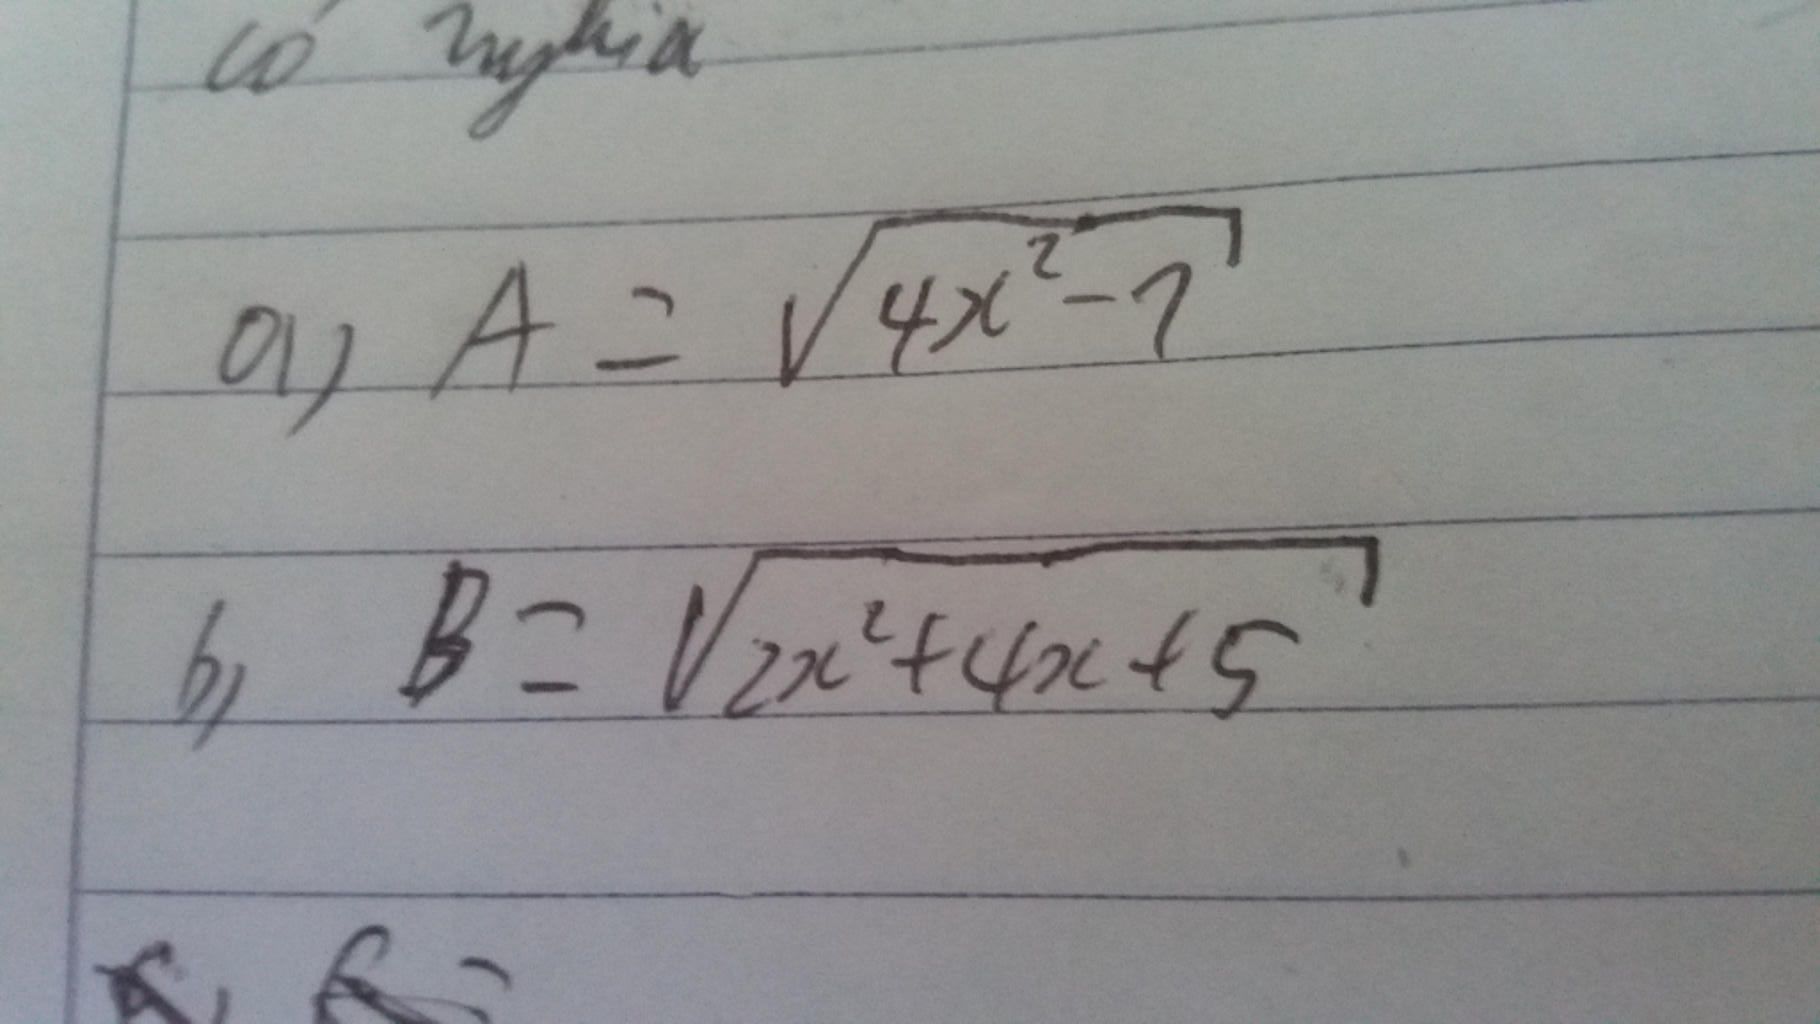 có nghĩa
a, A = √4x² - 1
b, B = √2x² + 4x + 5